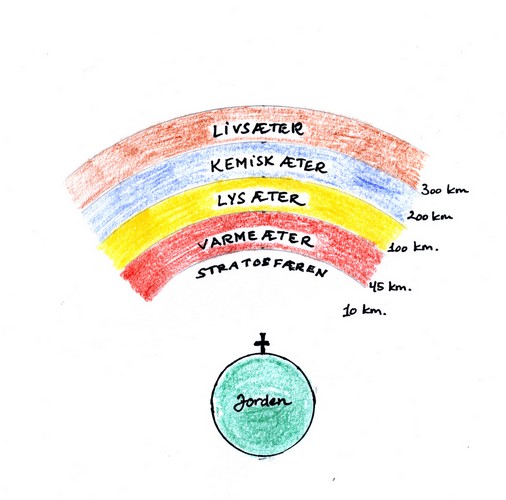 LIVSÆTER
KEMISK ÆTER
300 km
LYS ÆTER
200 km
VARME ÆTER
100 km.
STRATOSFÆREN
45 km.
10 km.
Jorden